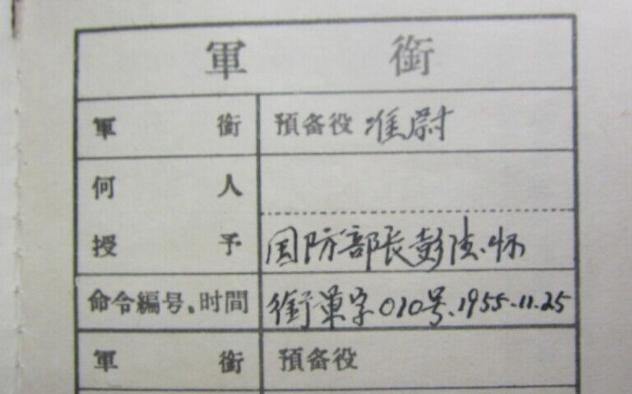 軍 銜
軍 銜 預备役 准尉
何 人
授 予 国防部长彭德怀
命令編号、时間 銜軍字010号、1955.11.25
軍 銜 預备役